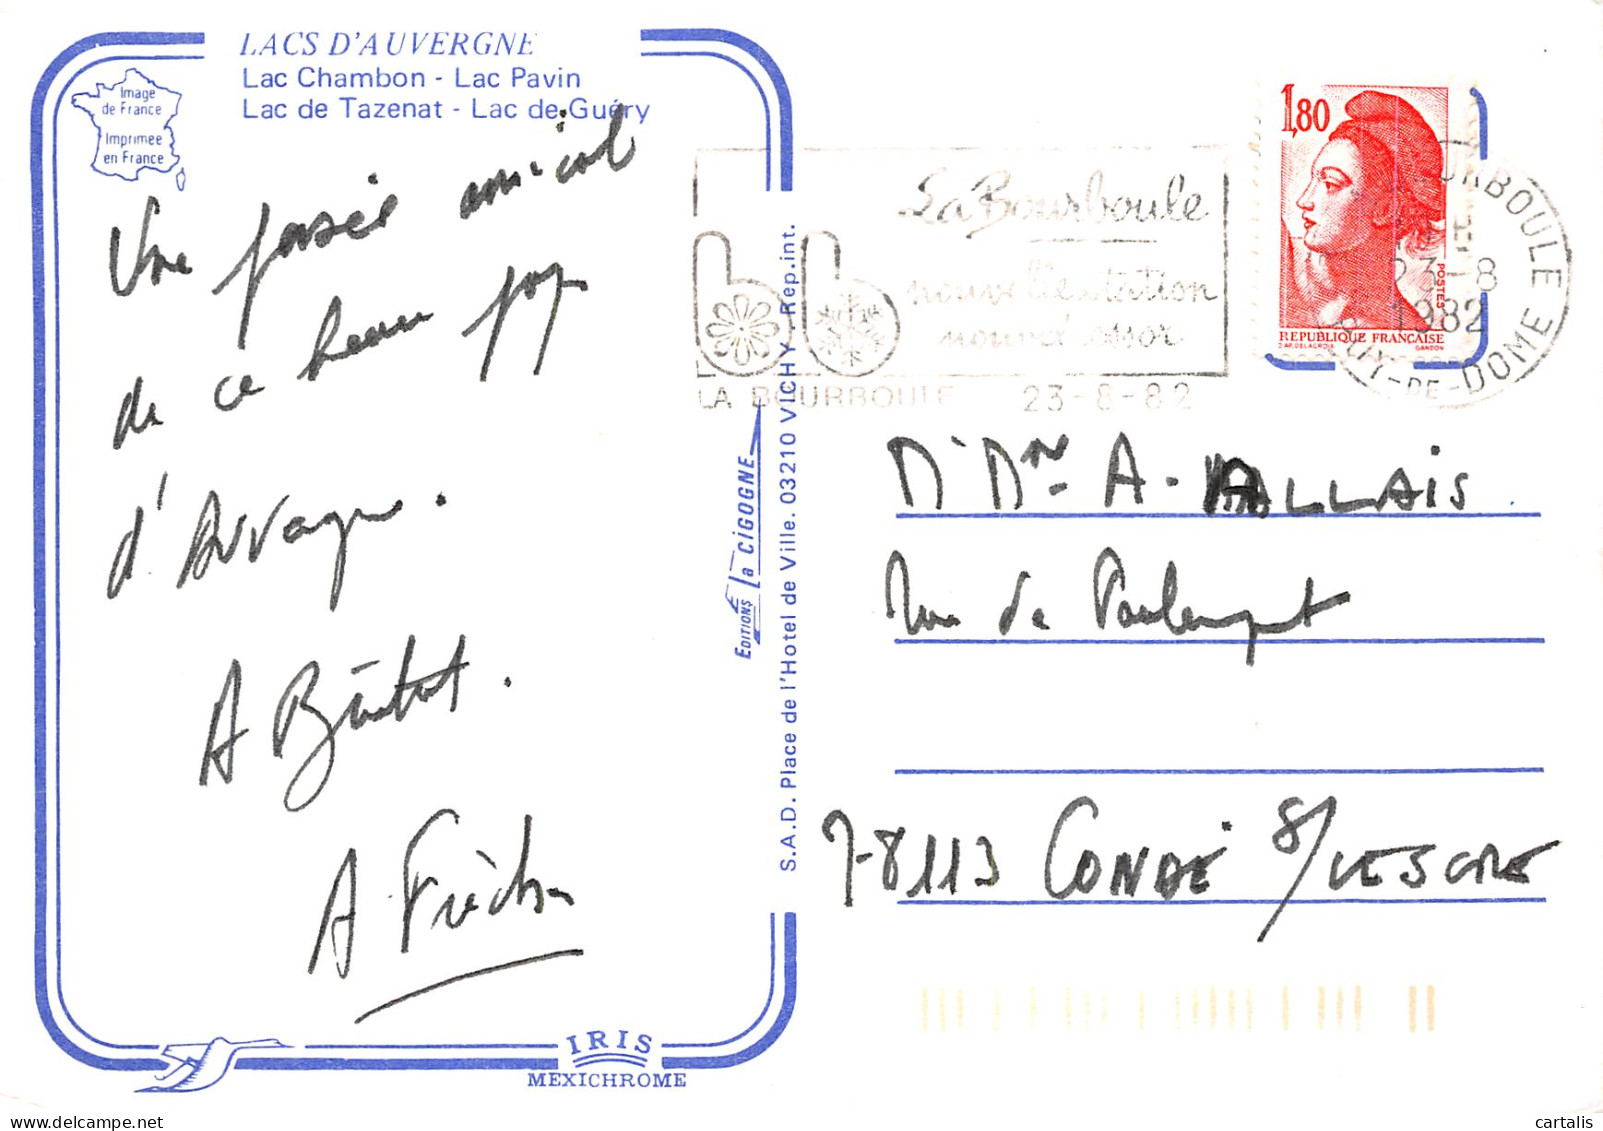 LACS D'AUVERGNE
Lac Chambon - Lac Pavin
Lac de Tazenat - Lac de Guéry
Image
de France
Imprimée
en France
Une pensée amical
de ce beau pays
d'Auvergne.
A Bientot.
A
1,80
POSTES
REPUBLIQUE FRANÇAISE
D'AP. DELACROIX GANDON
La Bourboule
nouvelle station
nouvel essor
LA BOURBOULE 23-8-82
BOURBOULE
23-8
1982
PUY-DE-DOME
S.A.D. Place de l'Hotel de Ville. 03210 VICHY Rep.int.
EDITIONS La CIGOGNE
Mr Mme A. ALLAIS
Rue de
78113 CONDÉ S/VESGRE
IRIS
MEXICHROME
cartalis
delcampe.net